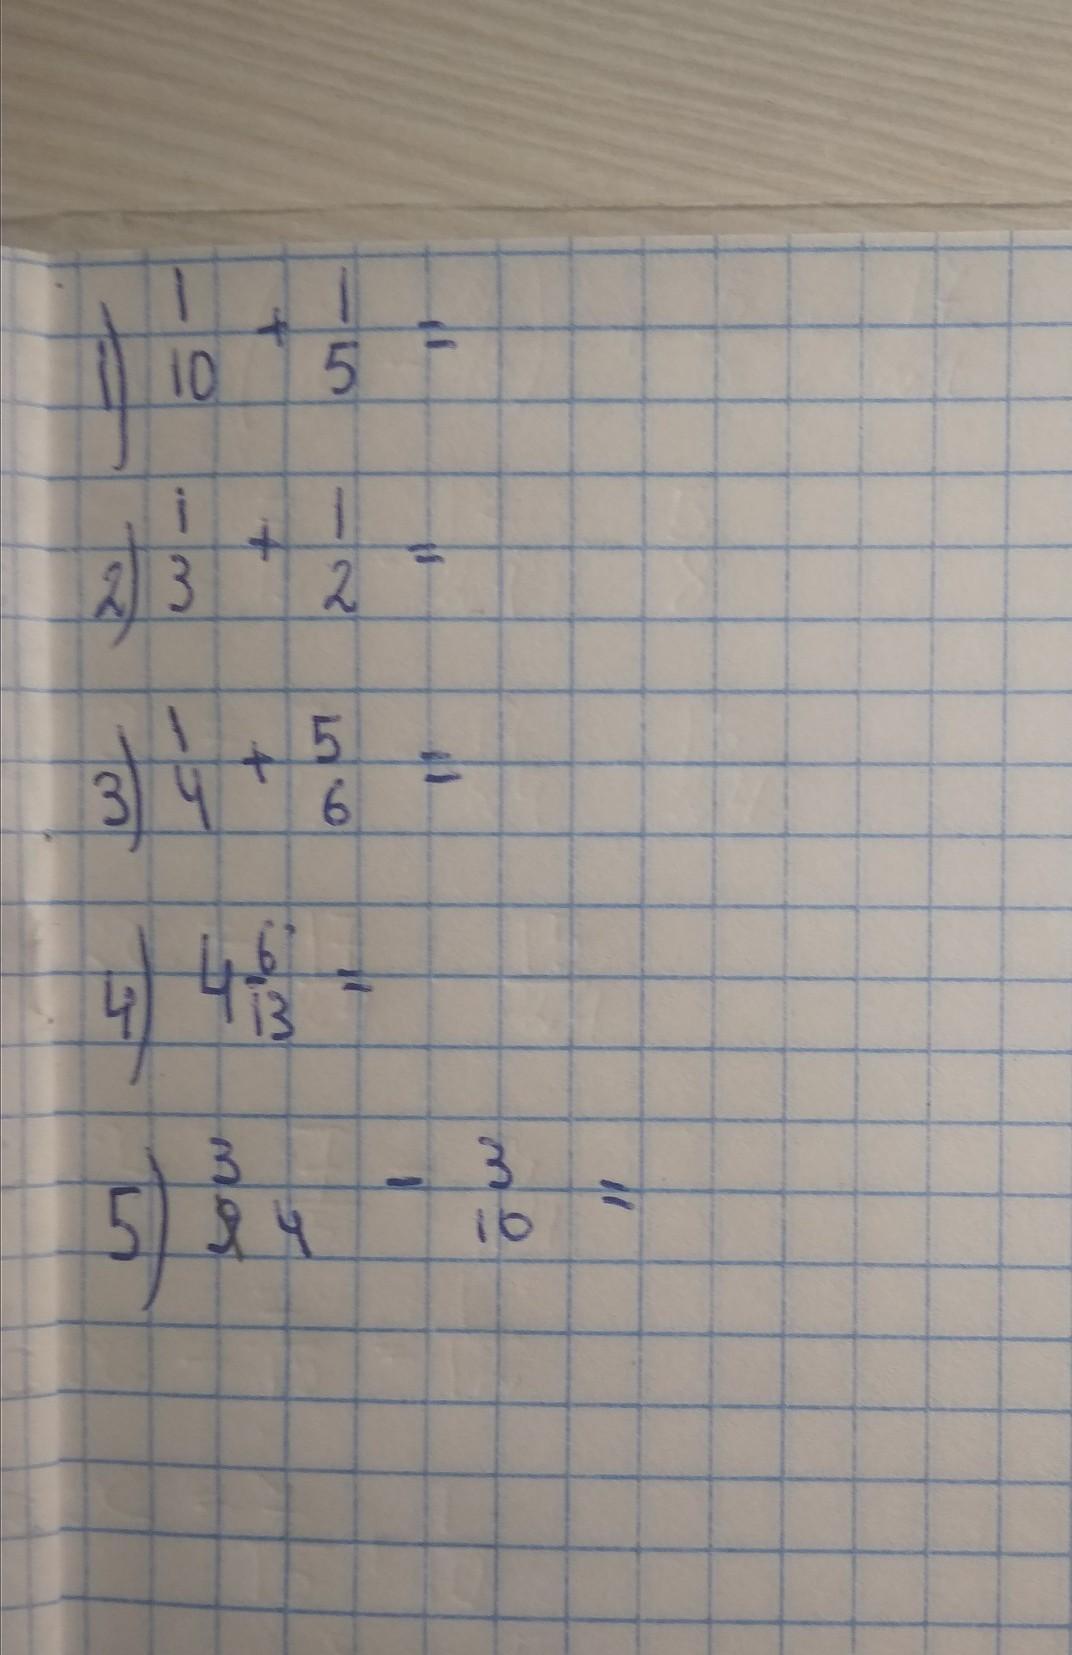 1) 1/10 + 1/5 =
2) 1/3 + 1/2 =
3) 1/4 + 5/6 =
4) 4 6/13 =
5) 3/4 - 3/10 =